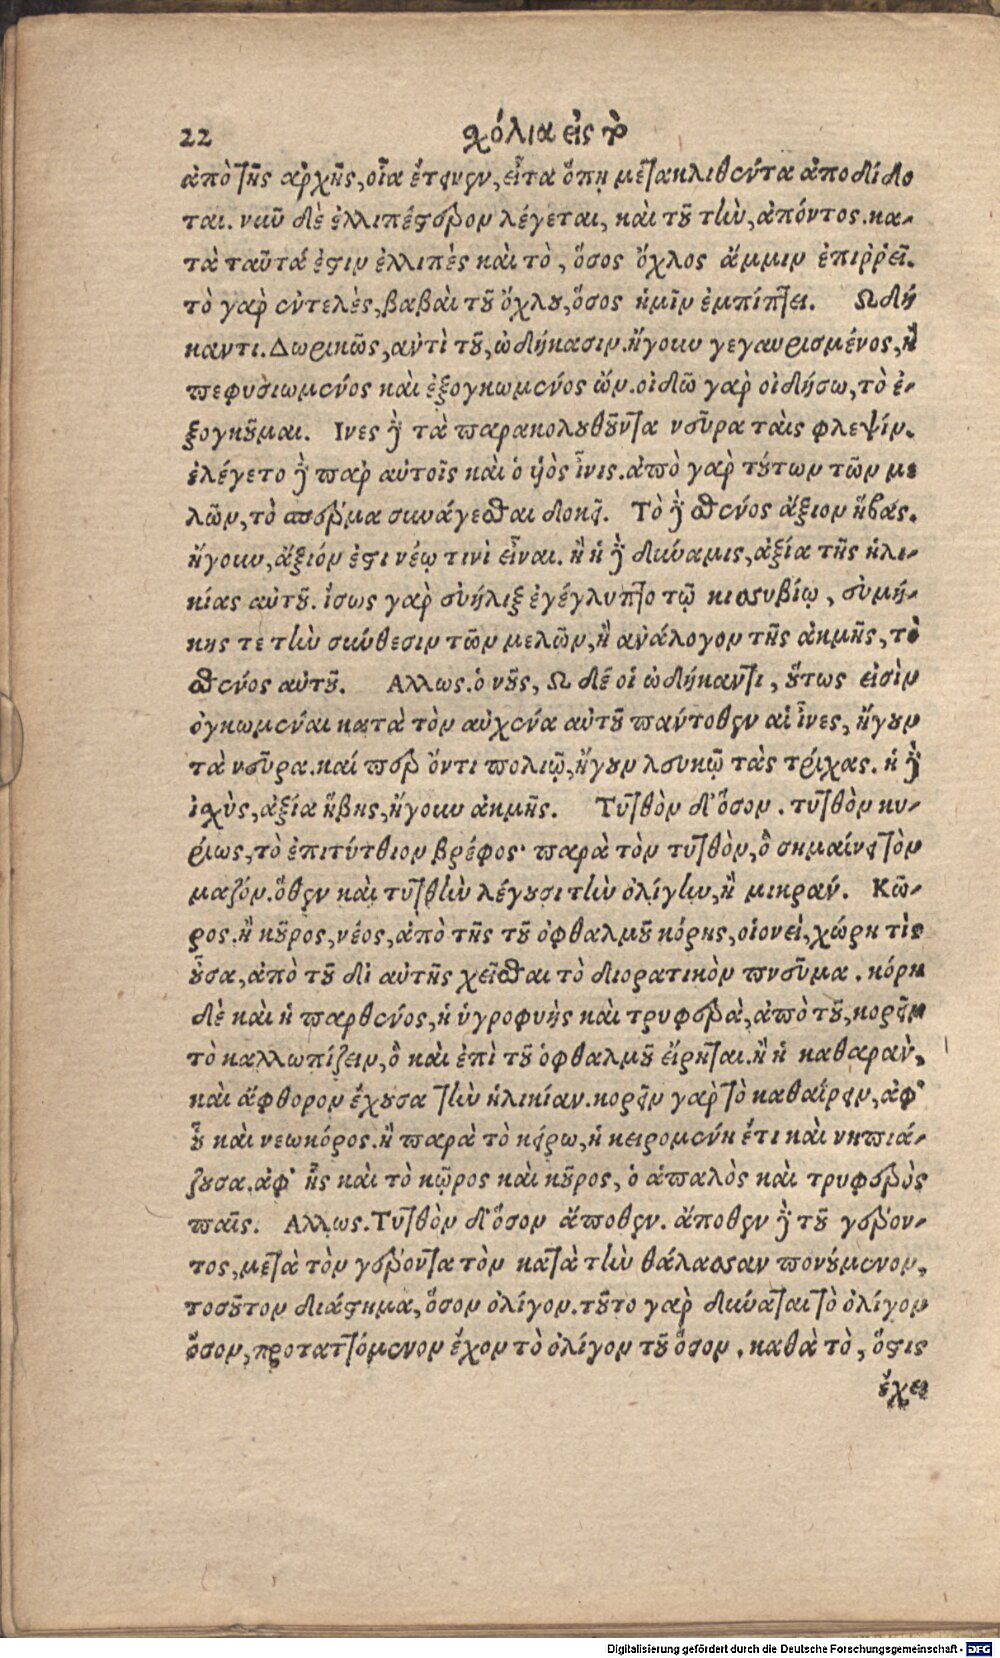 22 σχόλια εἰς τὸ
ἀπὸ τῆς ἀρχῆς, οἷα ἔτεινεν, εἶτα ὅπη μετακλιθέντα ἀποδίδο
ται. νῦν δὲ ἐλλιπέστερον λέγεται, καὶ τοῦ τὴν, ἀπόντος. κα-
τὰ ταῦτά ἐστιν ἐλλιπὲς καὶ τὸ, ὅσος ὄχλος ἄμμιν ἐπιῤῥεῖ.
τὸ γὰρ ἐντελὲς, βαβαὶ τοῦ ὄχλου, ὅσος ἡμῖν ἐμπίπτει. Ωδή
καντι. Δωρικῶς, αντὶ τοῦ, ὠδήκασιν. ἤγουν γεγαυρισμένος, ἢ
πεφυσιωμένος καὶ ἐξογκωμένος ὤν. οἰδῶ γὰρ οἰδήσω, τὸ ἐ-
ξογκοῦμαι. Ινες δὲ τὰ παρακολουθοῦντα νεῦρα ταῖς φλεψίν.
ἐλέγετο δὲ παρ αὐτοῖς καὶ ὁ υἱὸς ἶνις. ἀπὸ γὰρ τούτων τῶν με
λῶν, τὸ σπέρμα συνάγεσθαι δοκεῖ. Τὸ δὲ σθένος ἄξιον ἥβας.
ἤγουν, ἄξιόν ἐστι νέῳ τινὶ εἶναι. ἢ ἡ δὲ δύναμις, ἀξία τῆς ἡλι-
κίας αὐτοῦ. ἴσως γὰρ συνήλιξ ἐγέγλυπτο τῷ κισσυβίῳ, σὺμή-
κης τε τὴν σύνθεσιν τῶν μελῶν, ἢ ανάλογον τῆς ἀκμῆς, τὸ
σθένος αὐτοῦ. Αλλως. ὁ νοῦς, Ω δέ οἱ ὠδήκαντι, οὕτως εἰσὶν
ὀγκωμέναι κατὰ τὸν αὐχένα αὐτοῦ παντοθεν αἱ ἶνες, ἤγουν
τὰ νεῦρα. καί περ ὄντι πολιῷ, ἤγουν λευκῷ τὰς τρίχας. ἡ δὲ
ἰσχὺς, ἀξία ἥβης, ἤγουν ἀκμῆς. Τυτθὸν δ' ὅσον. τυτθὸν κυ-
ρίως, τὸ ἐπιτύτθιον βρέφος· παρὰ τὸν τυτθὸν, ὃ σημαίνει τὸν
μαζόν. ὅθεν καὶ τυτθὴν λέγουσι τὴν ὀλίγην, ἢ μικράν. Κῶ-
ρος. ἢ κοῦρος, νέος, ἀπὸ τῆς τοῦ ὀφθαλμοῦ κόρης, οἱονεί, χώρη τὶς
οὖσα, ἀπὸ τοῦ δι αὐτῆς χεῖσθαι τὸ διορατικὸν πνεῦμα. κόρη
δὲ καὶ ἡ παρθένος, ἡ ὑγροφυὴς καὶ τρυφερὰ, ἀπὸ τοῦ, κορεῖν
τὸ καλλωπίζειν, ὃ καὶ ἐπὶ τοῦ ὀφθαλμοῦ εἴρηται. ἢ ἡ καθαρὰν,
καὶ ἄφθορον ἔχουσα τὴν ἡλικίαν. κορεῖν γαρ τὸ καθαίρειν, ἀφ'
οὗ καὶ νεωκόρος. ἢ παρὰ τὸ κείρω, ἡ κειρομένη ἔτι καὶ νηπιά-
ζουσα. ἀφ' ἧς καὶ τὸ κῶρος καὶ κοῦρος, ὁ ἁπαλὸς καὶ τρυφερὸς
παῖς. Αλλως. Τυτθὸν δ' ὅσον ἄποθεν. ἄποθεν δὲ τοῦ γέρον-
τος, μετὰ τὸν γέροντα τὸν κατὰ τὴν θάλασσαν πονούμενον,
τοσοῦτον διάστημα, ὅσον ὀλίγον. τοῦτο γὰρ δύναται τὸ ὀλίγον
ὅσον, προταττόμενον ἔχον τὸ ὀλίγον τοῦ ὅσον, καθὰ τὸ, ὅστις
ἔχει